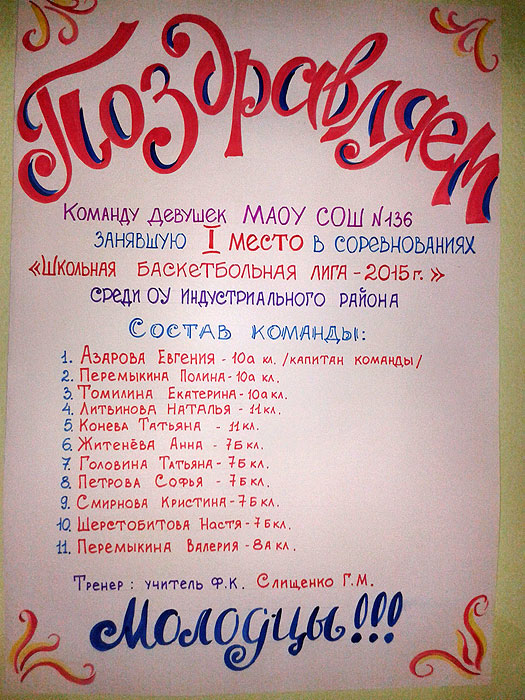 Поздравляем
Команду девушек МАОУ СОШ N136
занявшую I место в соревнованиях
«Школьная баскетбольная лига - 2015г.»
среди ОУ Индустриального района
Состав команды:
1. Азарова Евгения - 10а кл. /капитан команды/
2. Перемыкина Полина - 10а кл.
3. Томилина Екатерина - 10а кл.
4. Литвинова Наталья - 11 кл.
5. Конева Татьяна - 11 кл.
6. Житенёва Анна - 7Б кл.
7. Головина Татьяна - 7Б кл.
8. Петрова Софья - 7Б кл.
9. Смирнова Кристина - 7Б кл.
10. Шерстобитова Настя - 7Б кл.
11. Перемыкина Валерия - 8А кл.
Тренер: учитель Ф.К. Слищенко Г.М.
Молодцы!!!